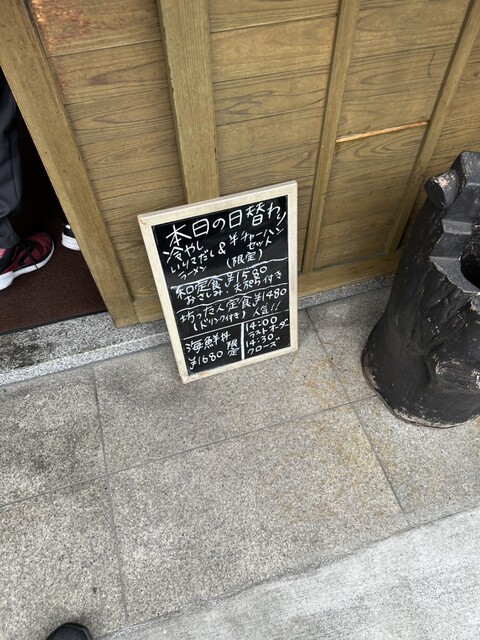 本日の日替わり
冷やし
いりこだし
ラーメン
&
半チャーハン
セット
(限定)
和定食 ¥1580
おさしみ・天ぷら付き
坊ったん定食 ¥1480
(ドリンク付き) 人気!!
海鮮丼 限定
¥1680
14:00
ラストオーダー
14:30
クローズ